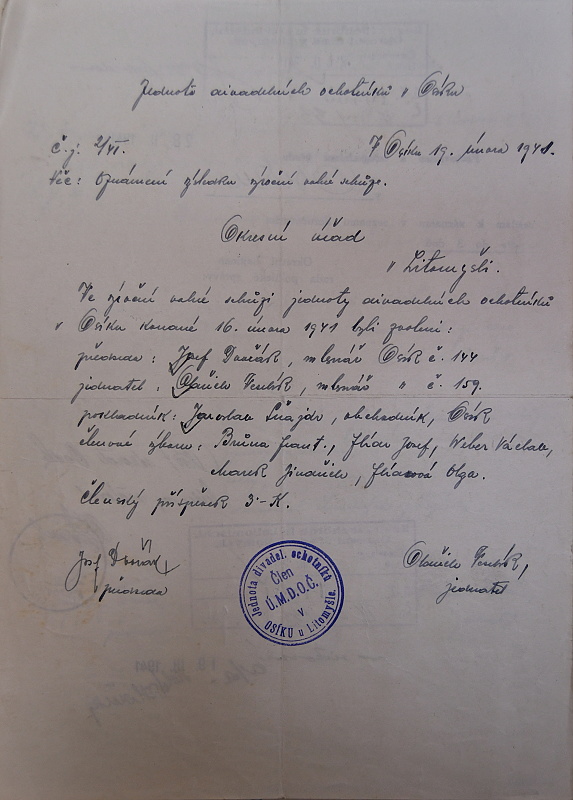 Jednota divadelních ochotníků v Osíku
Č. j. 2/41.
V Osíku 19. února 1941.
Věc: Oznámení výsledku výroční valné schůze.
Okresní úřad
v Litomyšli.
Ve výroční valné schůzi jednoty divadelních ochotníků
v Osíku konané 16. února 1941 byli zvoleni:
předseda: Josef Dvořák, mlynář Osík č. 144
jednatel: Oldřich mlynář " č. 159.
pokladník: Jaroslav obchodník, Osík
členové výboru: Brůna Frant., Flídr Josef, Weber Václav,
Marek Jindřich, Flídrová Olga.
Členský příspěvek 3·- K.
Josef Dvořák
předseda
Oldřich
jednatel
Jednota divadel. ochotníků
Člen
Ú.M.D.O.Č.
v
OSÍKU u Litomyšle.